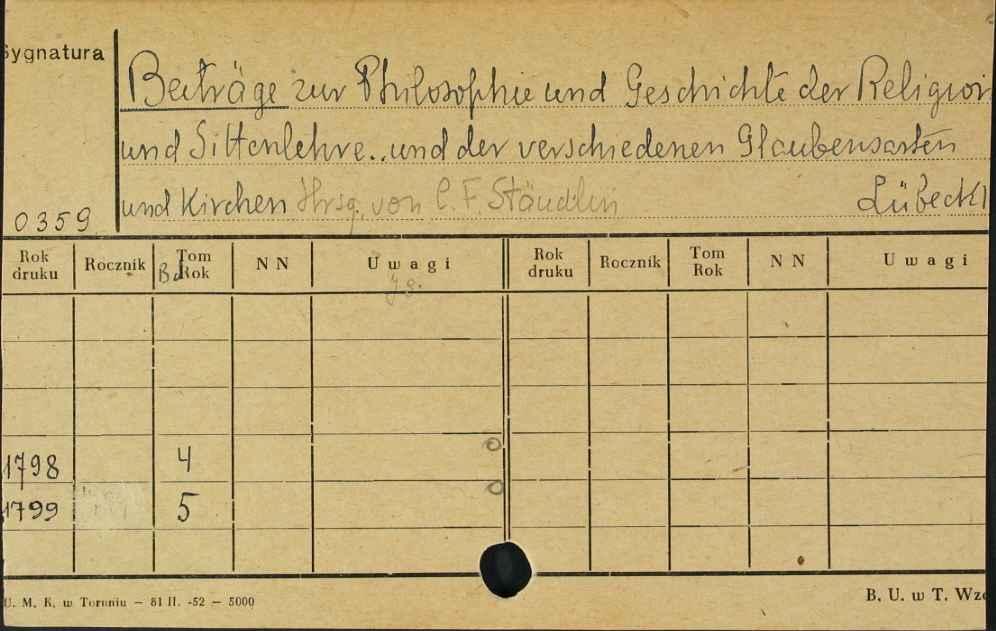 Sygnatura
Beiträge zur Philosophie und Geschichte der Religion
und Sittenlehre.. und der verschiedenen Glaubensarten
und Kirchen Hrsg. von C. F. Stäudlin Lübeck
0359
Rok druku Rocznik Tom Rok Bd N N Uwagi Rok druku Rocznik Tom Rok N N Uwagi
1798 4
1799 5
U. M. K. w Toruniu — 81 II. -52 — 5000
B. U. w T. Wzó